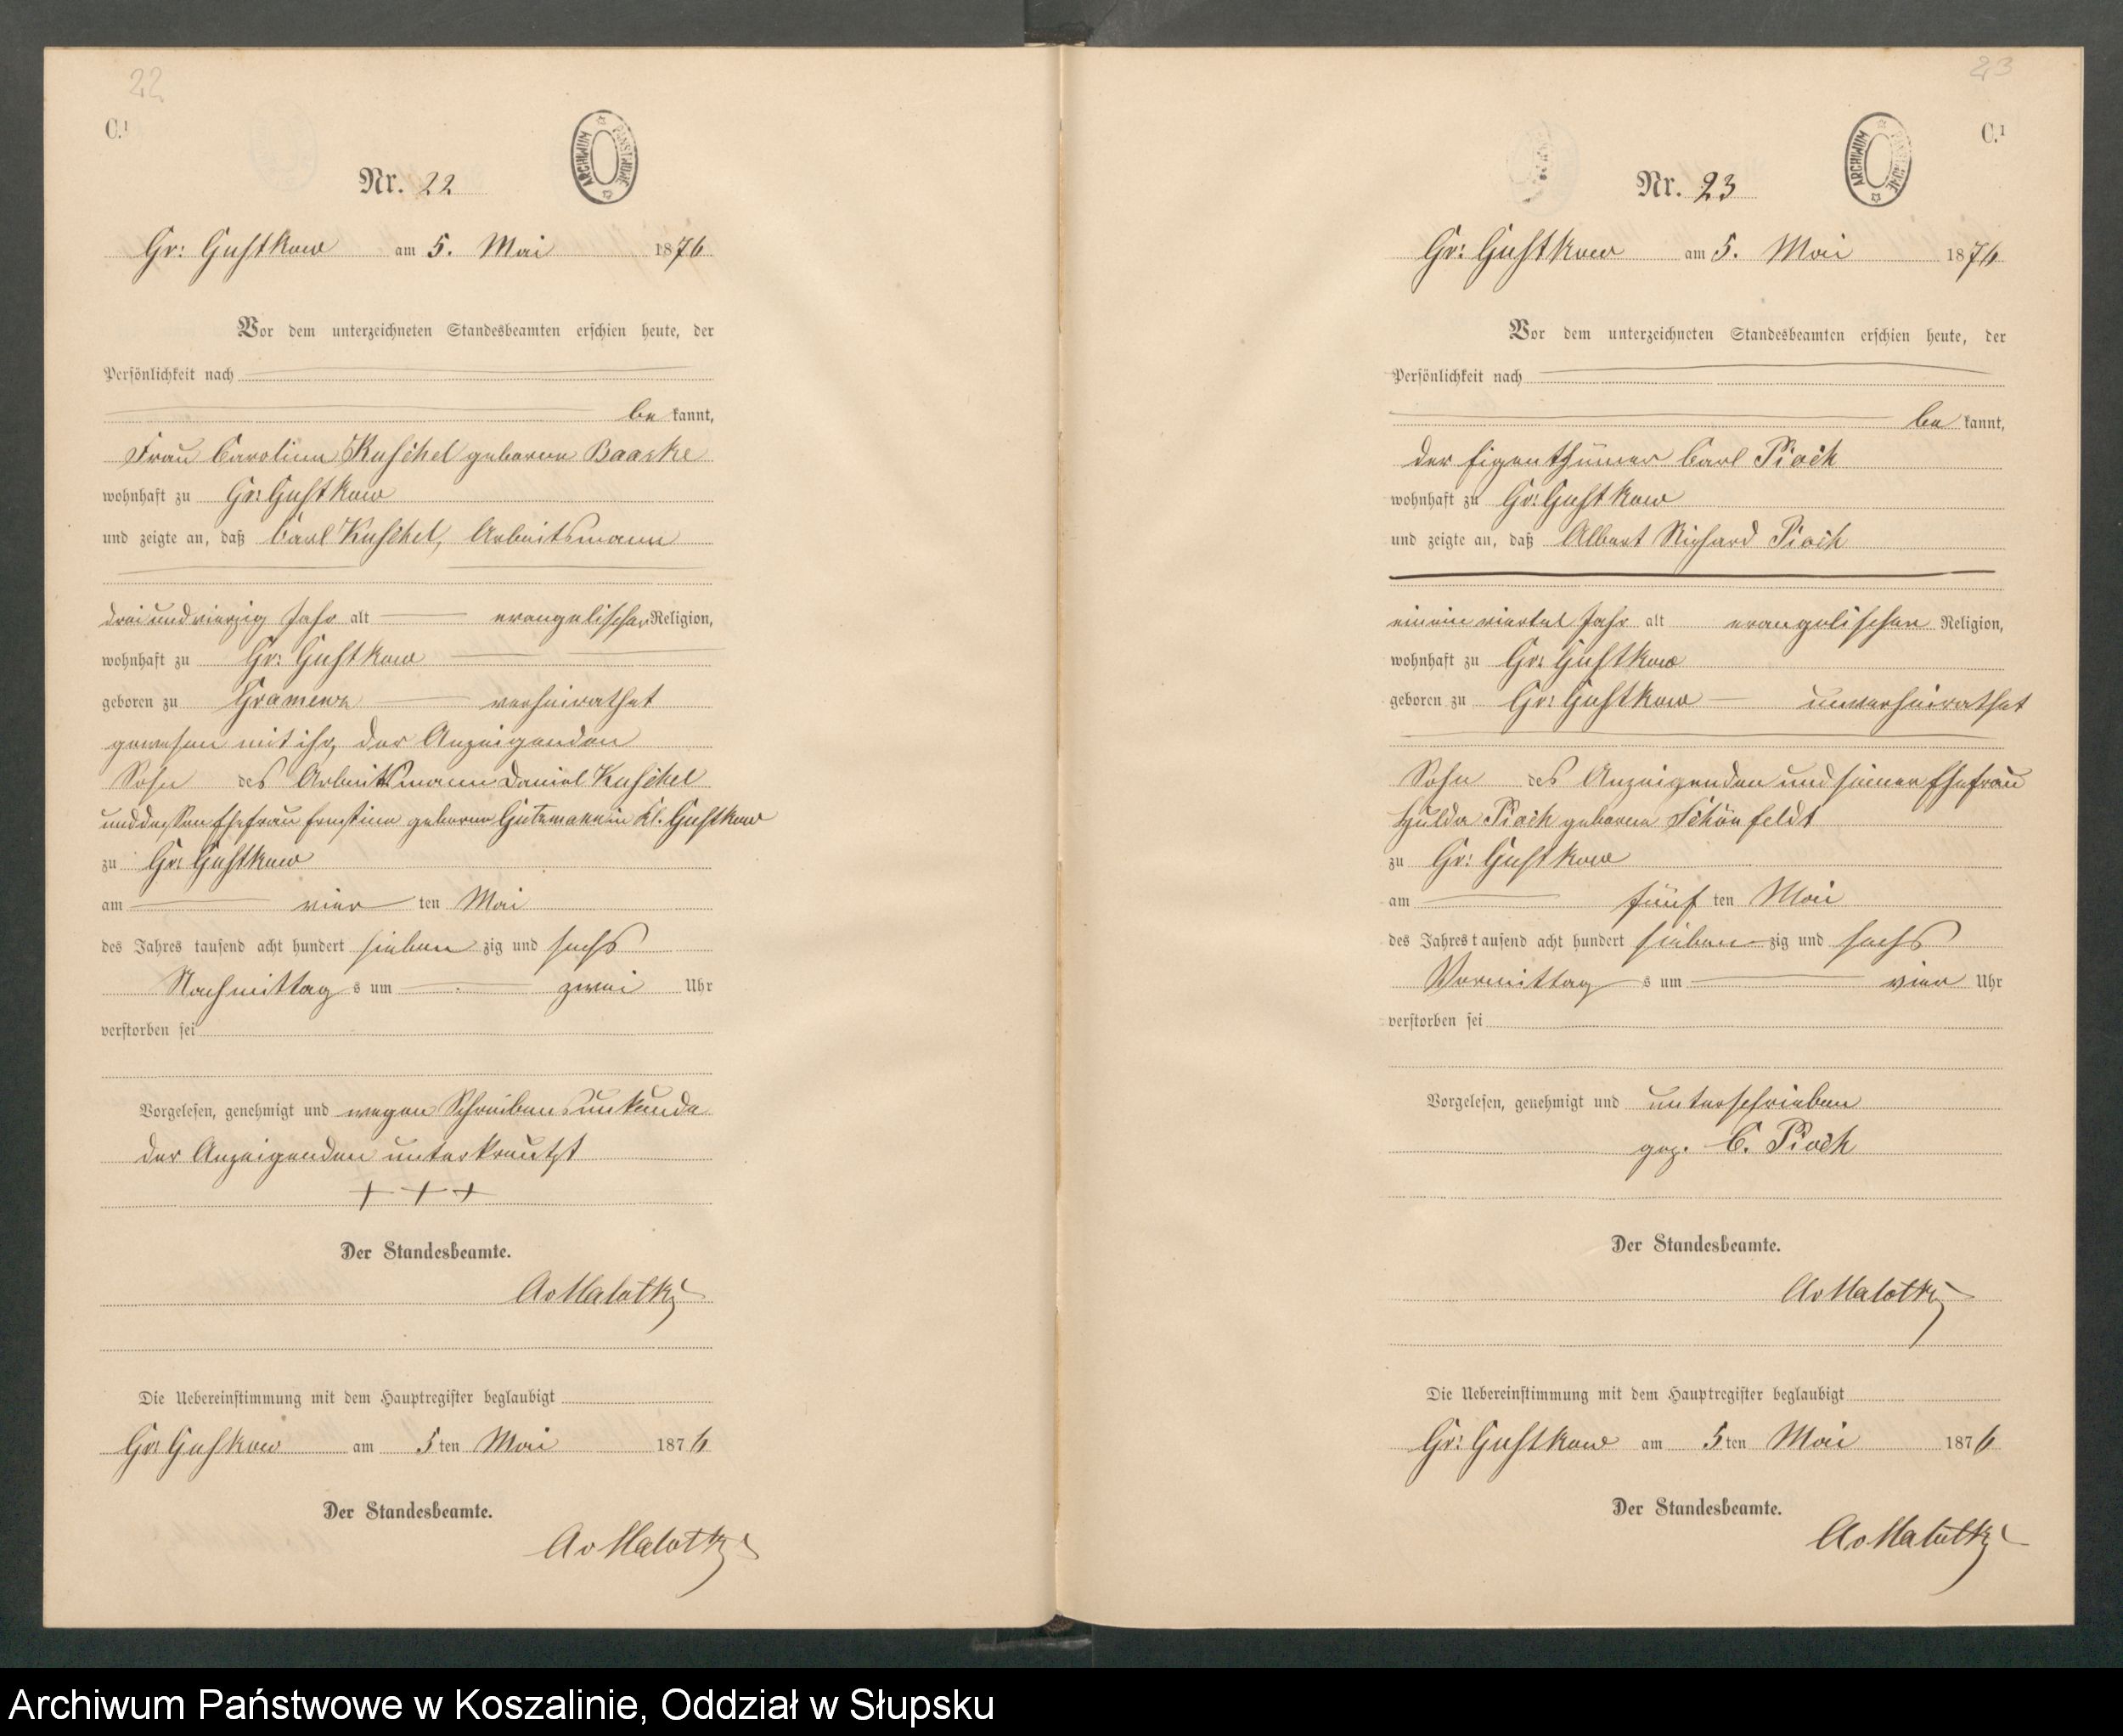 22
C.¹
ARCHIWUM PAŃSTWOWE
Nr. 22
Gr: Gustkow am 5. Mai 1876
Vor dem unterzeichneten Standesbeamten erschien heute, der
Persönlichkeit nach
be kannt,
Frau Caroline Kuschel geborene Baaske
wohnhaft zu Gr: Gustkow
und zeigte an, daß Carl Kuschel, Arbeitsmann
drei und vierzig Jahr alt evangelischer Religion,
wohnhaft zu Gr: Gustkow
geboren zu Gramenz verheirathet
gewesen mit ihr, der Anzeigenden
Sohn des Arbeitsmann Daniel Kuschel
und dessen Ehefrau Ernstine geborene Gutzmann in Kl. Gustkow
zu Gr: Gustkow
am vier ten Mai
des Jahres tausend acht hundert sieben zig und sechs
Nachmittag s um zwei Uhr
verstorben sei
Vorgelesen, genehmigt und wegen Schreibensunkunde
der Anzeigenden unterkreutzt
+ + +
Der Standesbeamte.
AvMalottki
Die Uebereinstimmung mit dem Hauptregister beglaubigt
Gr: Guskow am 5ten Mai 1876
Der Standesbeamte.
AvMalottki
23
C.¹
ARCHIWUM PAŃSTWOWE
Nr. 23
Gr: Gustkow am 5. Mai 1876
Vor dem unterzeichneten Standesbeamten erschien heute, der
Persönlichkeit nach
be kannt,
der Eigenthümer Carl Pioch
wohnhaft zu Gr: Gustkow
und zeigte an, daß Albert Richard Pioch
einein viertel Jahr alt evangelischer Religion,
wohnhaft zu Gr: Gustkow
geboren zu Gr: Gustkow unverheirathet
Sohn des Anzeigenden und seiner Ehefrau
Hulda Pioch geborene Schönfeldt
zu Gr: Gustkow
am fünf ten Mai
des Jahres tausend acht hundert sieben zig und sechs
Vormittag s um vier Uhr
verstorben sei
Vorgelesen, genehmigt und unterschrieben
gez. C. Pioch
Der Standesbeamte.
AvMalottki
Die Uebereinstimmung mit dem Hauptregister beglaubigt
Gr: Gustkow am 5ten Mai 1876
Der Standesbeamte.
AvMalottki
Archiwum Państwowe w Koszalinie, Oddział w Słupsku